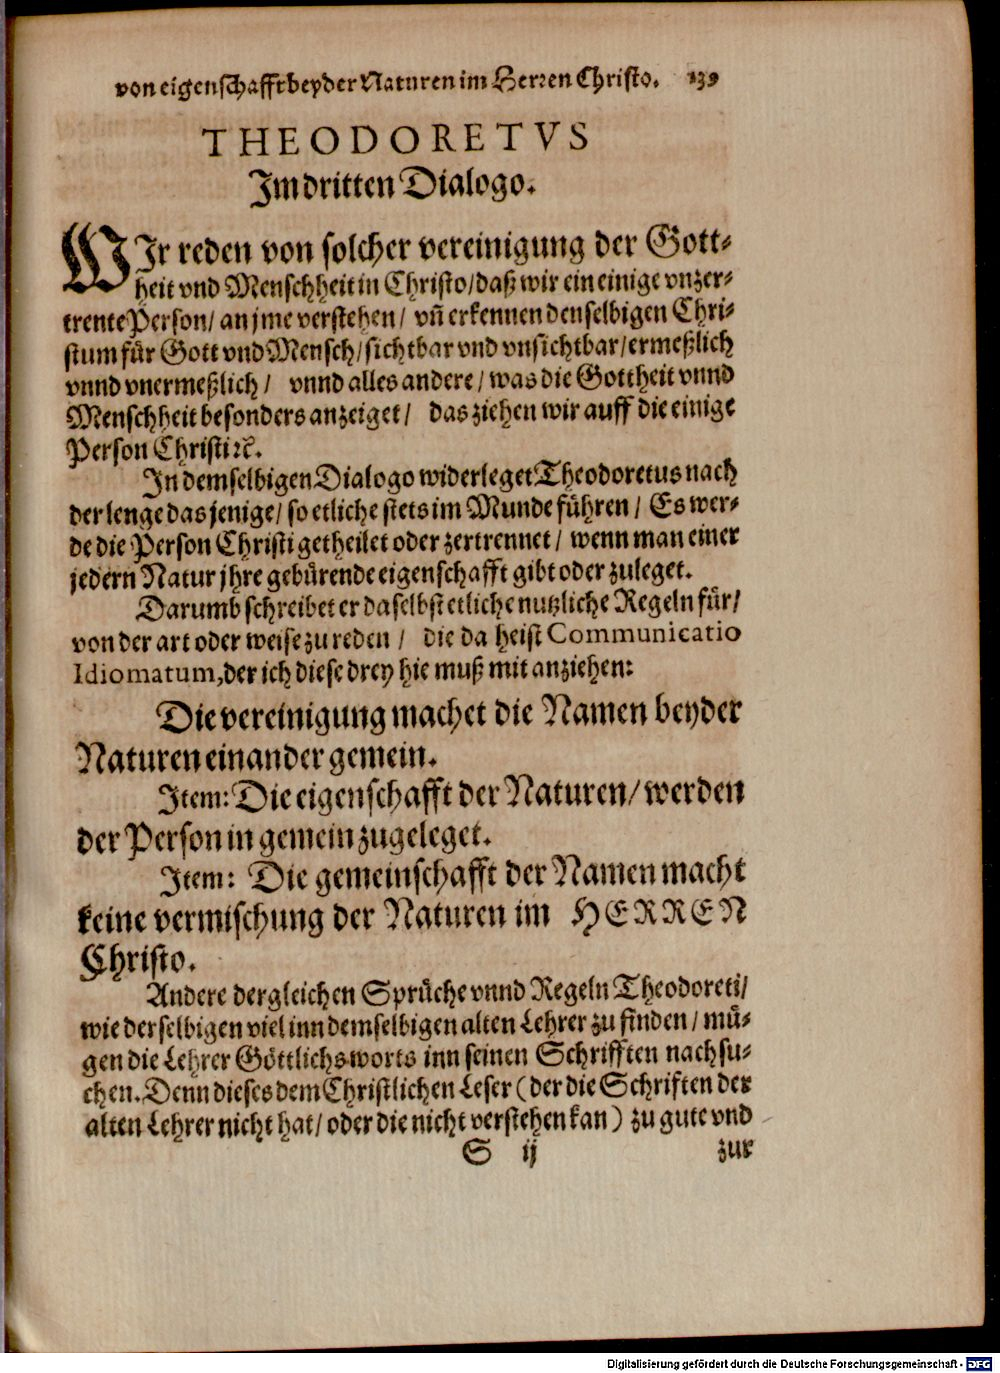 von eigenschafft beyder Naturen im Herren Christo. 139
THEODORETVS
Im dritten Dialogo.
WIr reden von solcher vereinigung der Gott⸗
heit vnd Menschheit in Christo/ daß wir ein einige vnzer⸗
trente Person/ an jme verstehen/ vñ erkennen denselbigen Chri⸗
stum für Gott vnd Mensch/ sichtbar vnd vnsichtbar/ ermeßlich
vnnd vnermeßlich/ vnnd alles andere/ was die Gottheit vnnd
Menschheit besonders anzeiget/ das ziehen wir auff die einige
Person Christi ꝛc.
In demselbigen Dialogo widerleget Theodoretus nach
der lenge das jenige/ so etliche stets im Munde führen/ Es wer⸗
de die Person Christi getheilet oder zertrennet/ wenn man einer
jedern Natur jhre gebürende eigenschafft gibt oder zuleget.
Darumb schreibet er daselbst etliche nutzliche Regeln für/
von der art oder weise zu reden/ die da heist Communicatio
Idiomatum, der ich diese drey hie muß mit anziehen:
Die vereinigung machet die Namen beyder
Naturen einander gemein.
Item: Die eigenschafft der Naturen/ werden
der Person in gemein zugeleget.
Item: Die gemeinschafft der Namen macht
keine vermischung der Naturen im HERREN
Christo.
Andere dergleichen Sprüche vnnd Regeln Theodoreti/
wie derselbigen viel inn demselbigen alten Lehrer zu finden/ mü⸗
gen die Lehrer Göttlichs worts inn seinen Schrifften nachsu⸗
chen. Denn dieses dem Christlichen Leser (der die Schriften der
alten Lehrer nicht hat/ oder die nicht verstehen kan) zu gute vnd
S ij zur
Digitalisierung gefördert durch die Deutsche Forschungsgemeinschaft - DFG